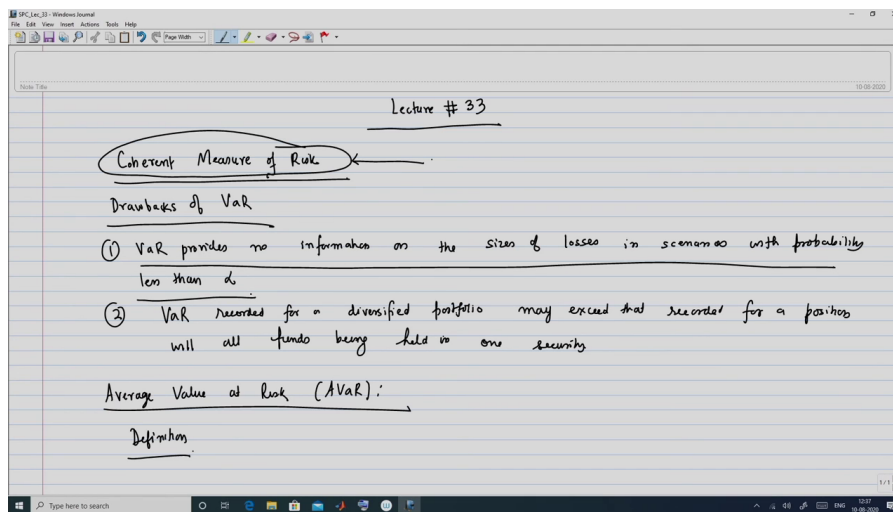 SPC_Lec_33 - Windows Journal
File Edit View Insert Actions Tools Help
Page Width
Note Title
10-08-2020
Lecture # 33
Coherent Measure of Risk
Drawbacks of VaR
① VaR provides no information on the sizes of losses in scenarios with probability
less than α
② VaR recorded for a diversified portfolio may exceed that recorded for a position
will all funds being held in one security
Average Value at Risk (AVaR):
Definition
1/1
Type here to search
ENG
12:37
10-08-2020